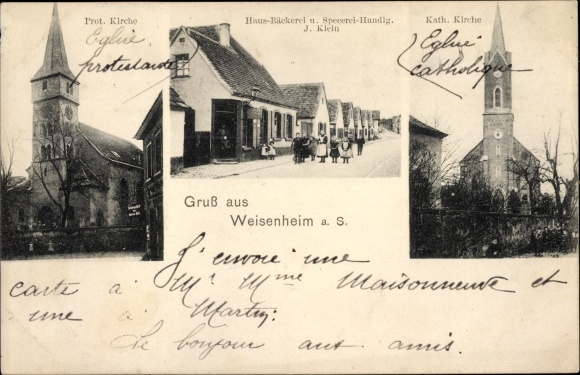 Prot. Kirche
Eglise
protestante
Haus-Bäckerei u. Specerei-Handlg.
J. Klein
Kath. Kirche
Eglise
catholique
Gruß aus
Weisenheim a. S.
J'envoie une
carte à Mr Mme Maisonneuve et
une à Martin
Le bonjour aux amis.